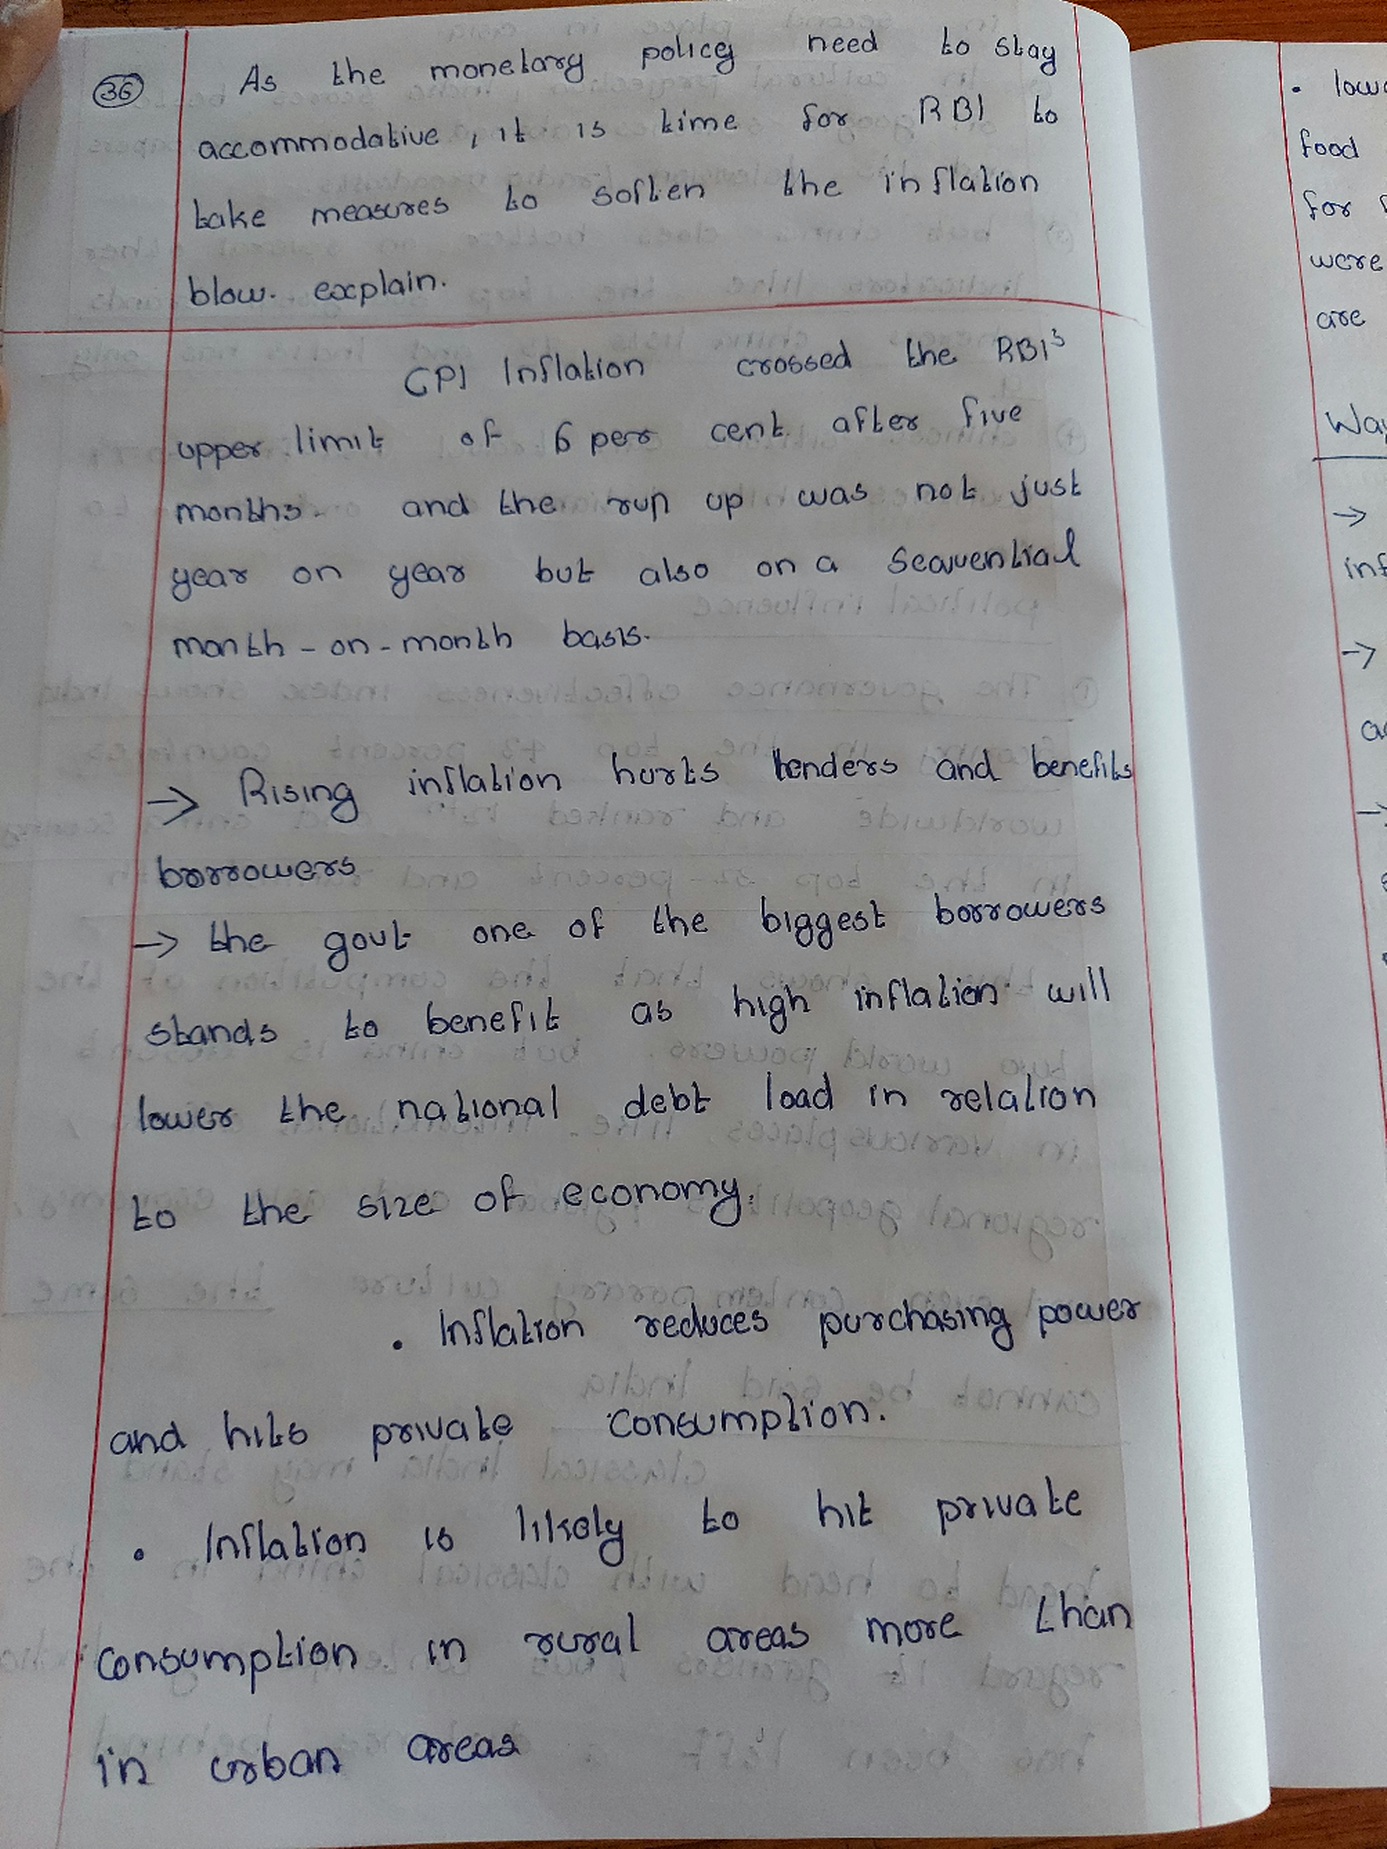 36
As the monetary policy need to stay
accommodative, it is time for RBI to
take measures to soften the inflation
blow. explain.
CPI Inflation crossed the RBI's
upper limit of 6 per cent after five
months. and the run up was not just
year on year but also on a seaventiad
month-on-month basis.
→ Rising inflation hurts lenders and benefits
borrowers
→ the govt one of the biggest borrowers
stands to benefit as high inflation will
lower the national debt load in relation
to the size of economy.
• Inflation reduces purchasing power
and hits private consumption.
• Inflation is likely to hit private
consumption in rural areas more than
in urban areas
• lowe
food
for
were
are
Way
→
inf
→
→